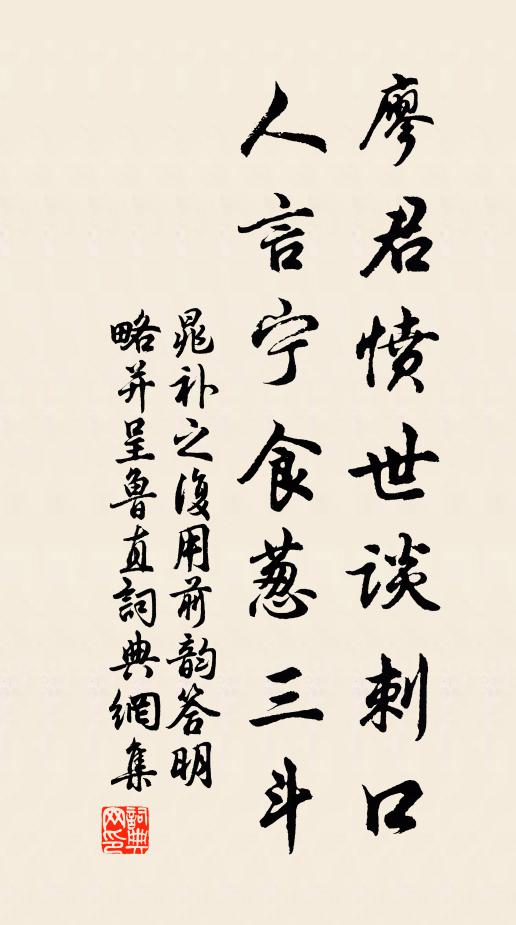 廖君憤世談刺口
人言宁食葱三斗
晁补之復用前韵答明
略并呈魯直詞典網集
詞典
网印